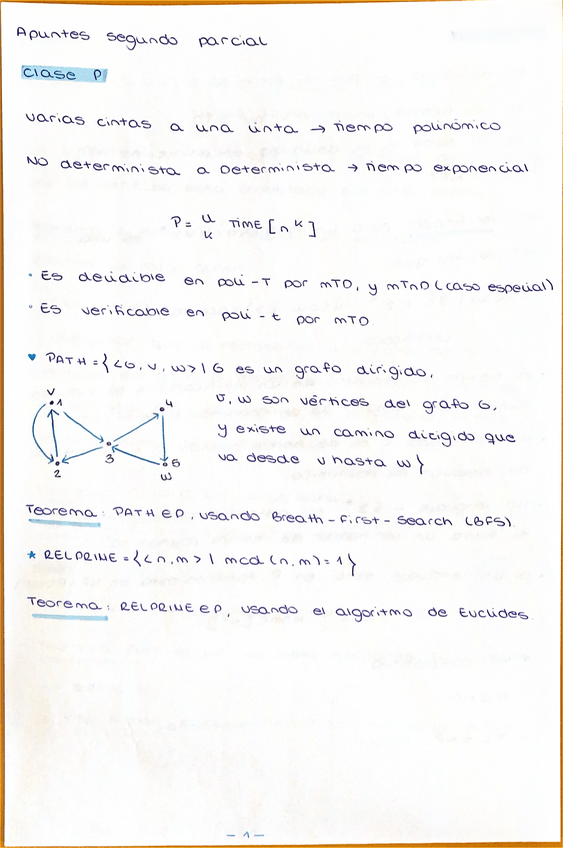 Apuntes segundo parcial
Clase P
varias cintas a una cinta → tiempo polinómico
No determinista a Determinista → tiempo exponencial
P = U TIME [n^k]
k
· Es decidible en poli-T por mTD, y mTnD (caso especial)
· Es verificable en poli-t por mTD
♥ PATH = {<G, v, w> | G es un grafo dirigido,
v, w son vértices del grafo G,
y existe un camino dirigido que
va desde v hasta w}
v
1
4
3
2
5
w
Teorema: PATH ∈ P, usando Breath-First-Search (BFS).
* RELPRIME = {<n, m> | mcd (n, m) = 1}
Teorema: RELPRIME ∈ P, usando el algoritmo de Euclides.
- 1 -